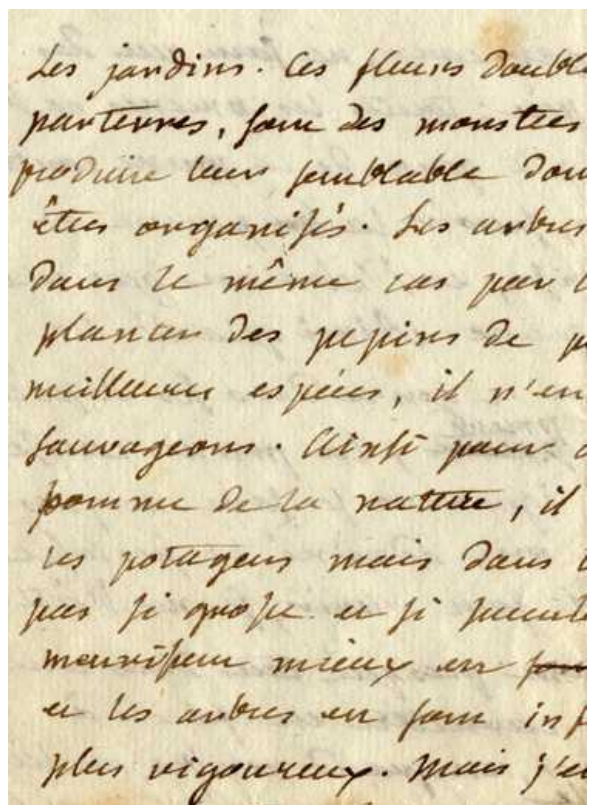 Les jardins. Ces fleurs double
parterres, sont des monstres
produire leur semblable dou
êtres organisés. Les arbres
dans le même cas par
plantez des pepins de p
meilleures especes, il n'en
sauvageons. Ainsi pour
pomme de la nature, il
les potagers mais dans
pas si grosse et si succul
mourissent mieux en
et les arbres en sont inf
plus vigoureux. Mais j'e